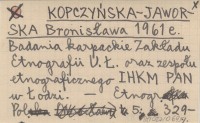 KOPCZYŃSKA-JAWOR-
SKA Bronisława 1961 r.
Badania karpackie Zakładu
Etnografii U.Ł. oraz zespołu
etnograficznego IHKM PAN
w Łodzi. — Etnog
Polska t. 5: s. 329-